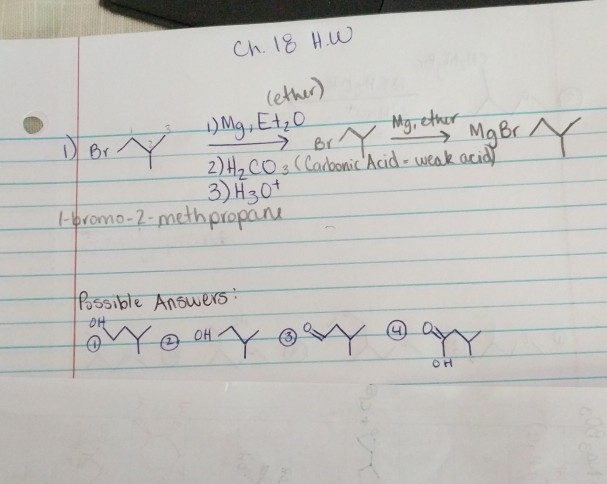 Ch. 18 H.W
(ether)
1) Br 1 2 3 1) Mg, Et2O Br Mg, ether MgBr
2) H2CO3 (Carbonic Acid = weak acid)
3) H3O+
1-bromo-2-methpropane
Possible Answers:
① OH ② OH ③ O ④ O OH